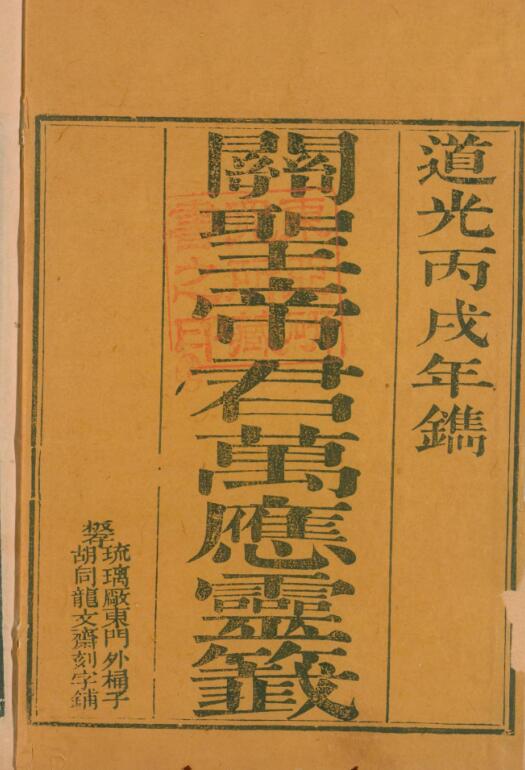 道光丙戌年鐫
關聖帝君萬應靈籤
琉璃厰東門外桶子
胡同龍文齋刻字鋪